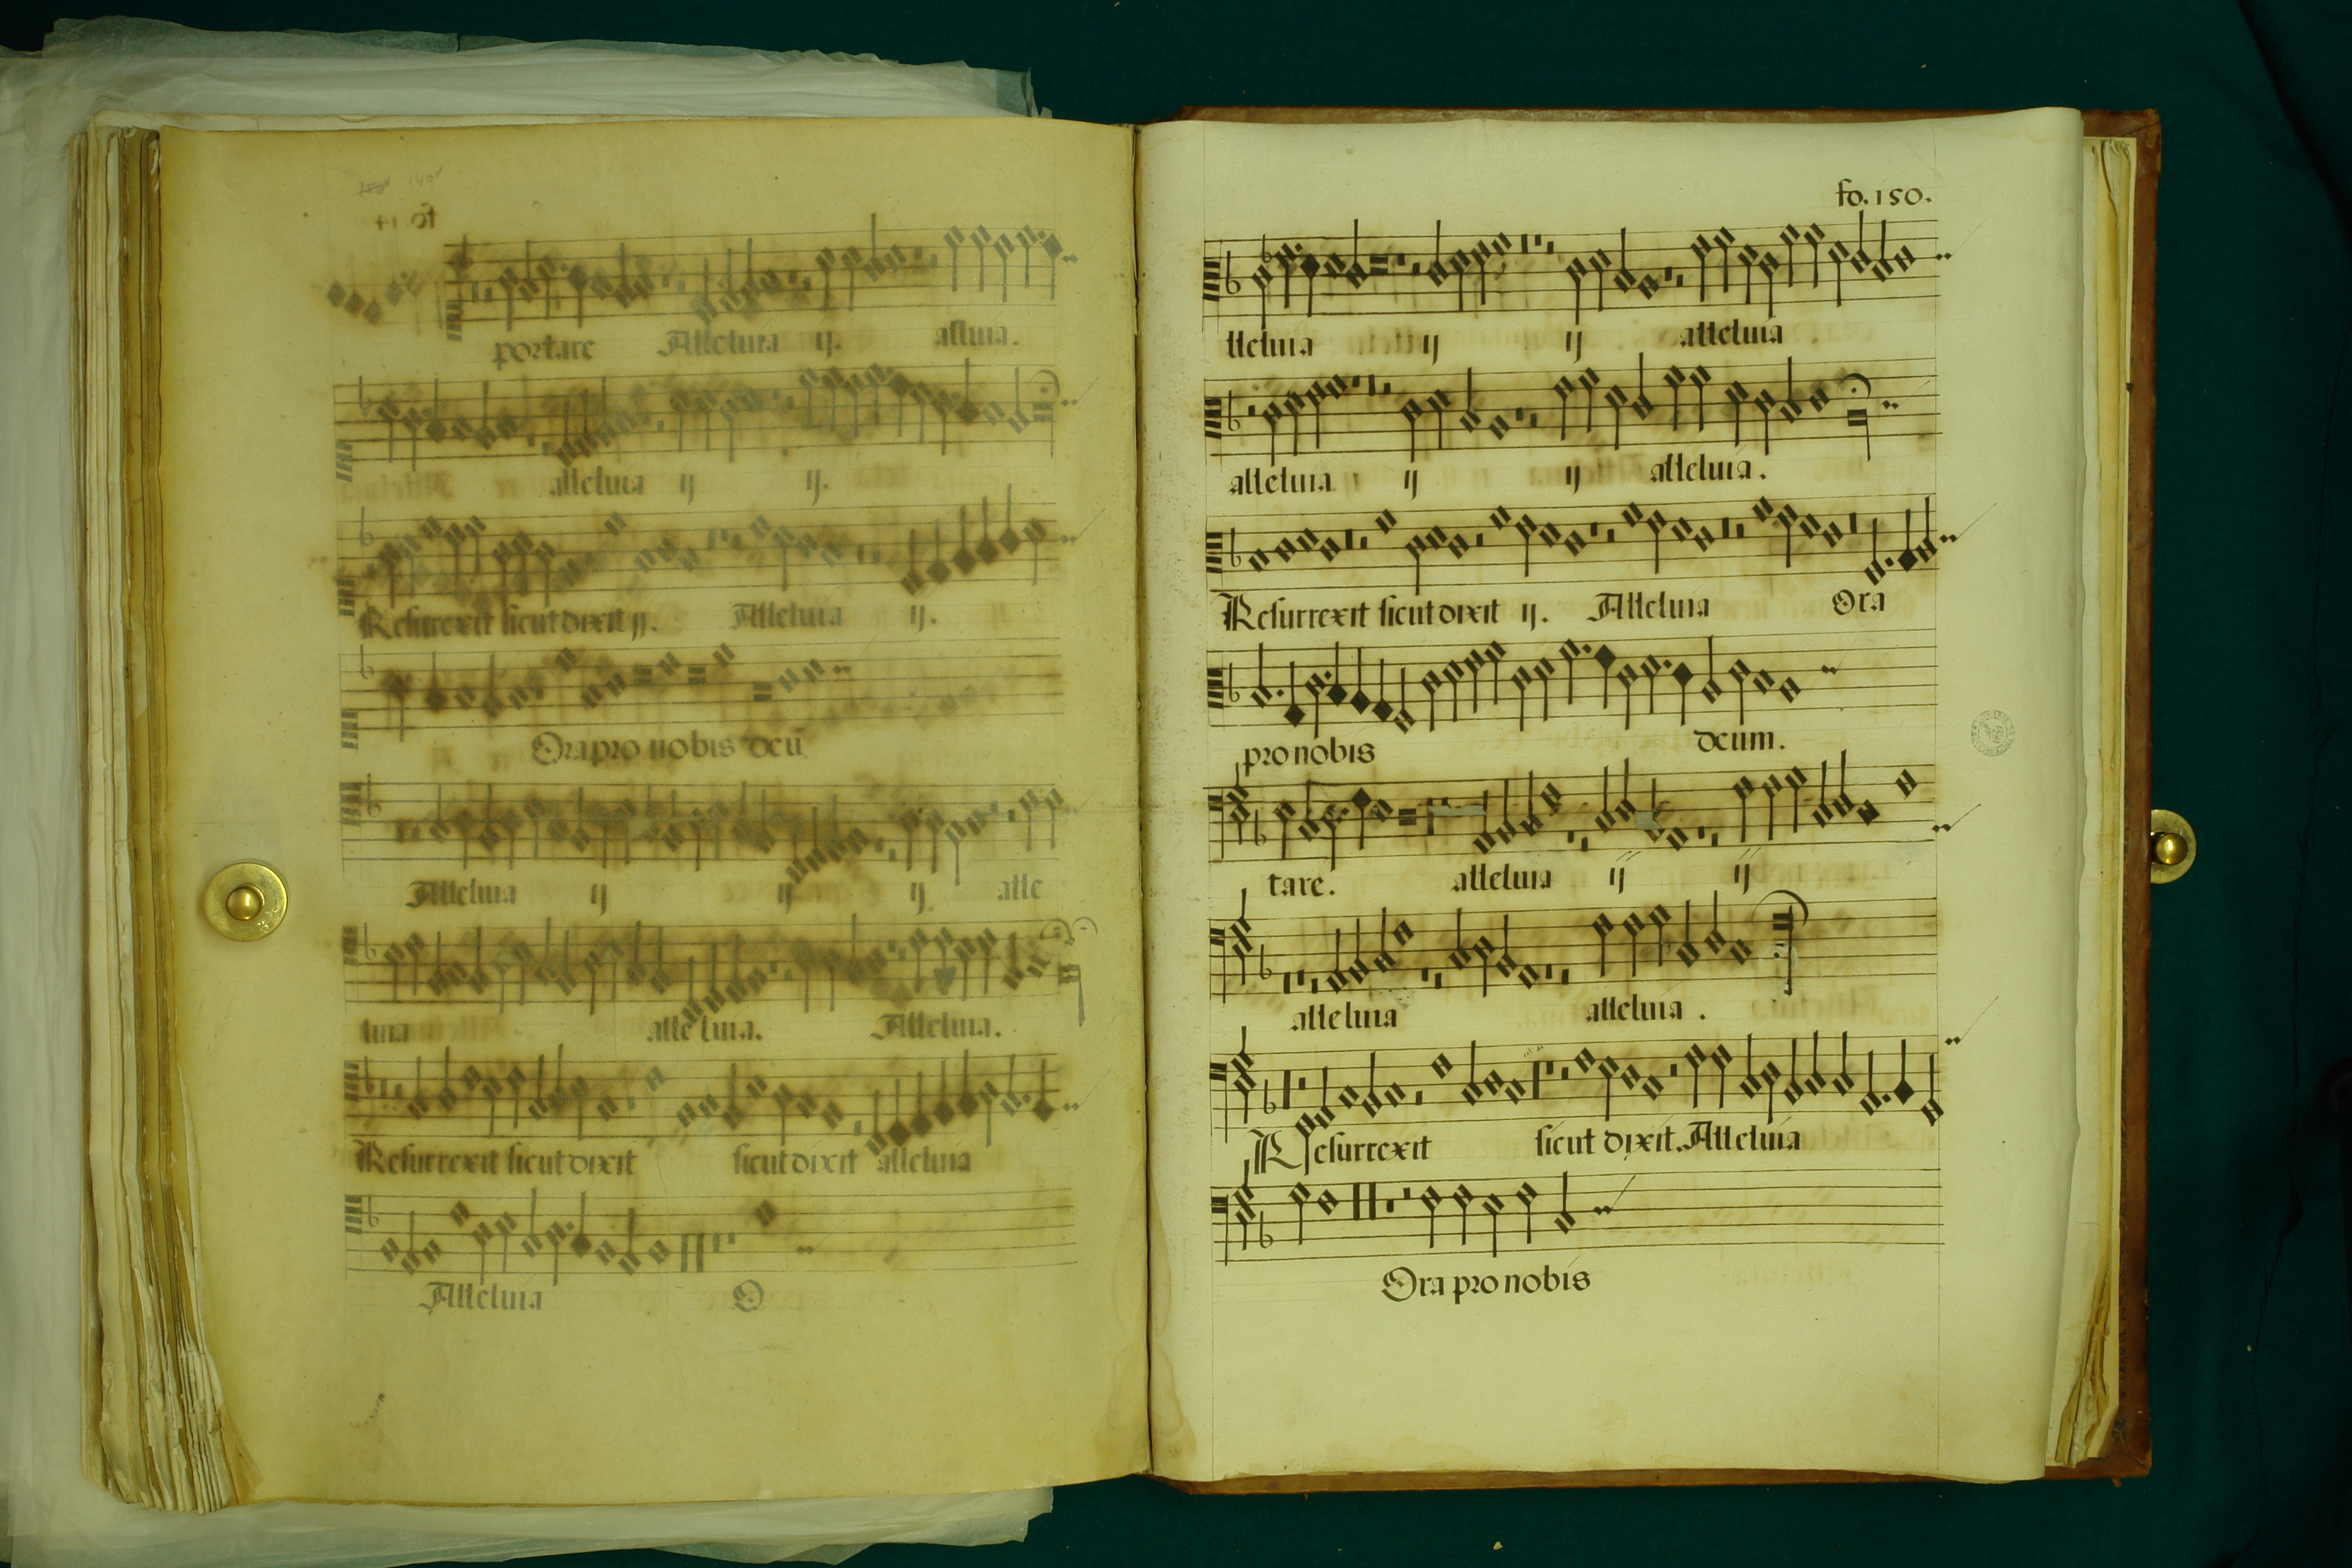 149v
portare Alleluia ij. alluia.
alleluia ij ij.
Resurrexit sicut dixit ij. Alleluia ij.
Ora pro nobis deū
Alleluia ij ij ij alle
luia alleluia. Alleluia.
Resurrexit sicut dixit sicut dixit alleluia
Alleluia O
fo. 150.
lleluia ij ij alleluia
alleluia ij ij alleluia.
Resurrexit sicut dixit ij. Alleluia Ora
pro nobis deum.
tare. alleluia ij ij
alleluia alleluia.
Resurrexit sicut dixit. Alleluia
Ora pro nobis